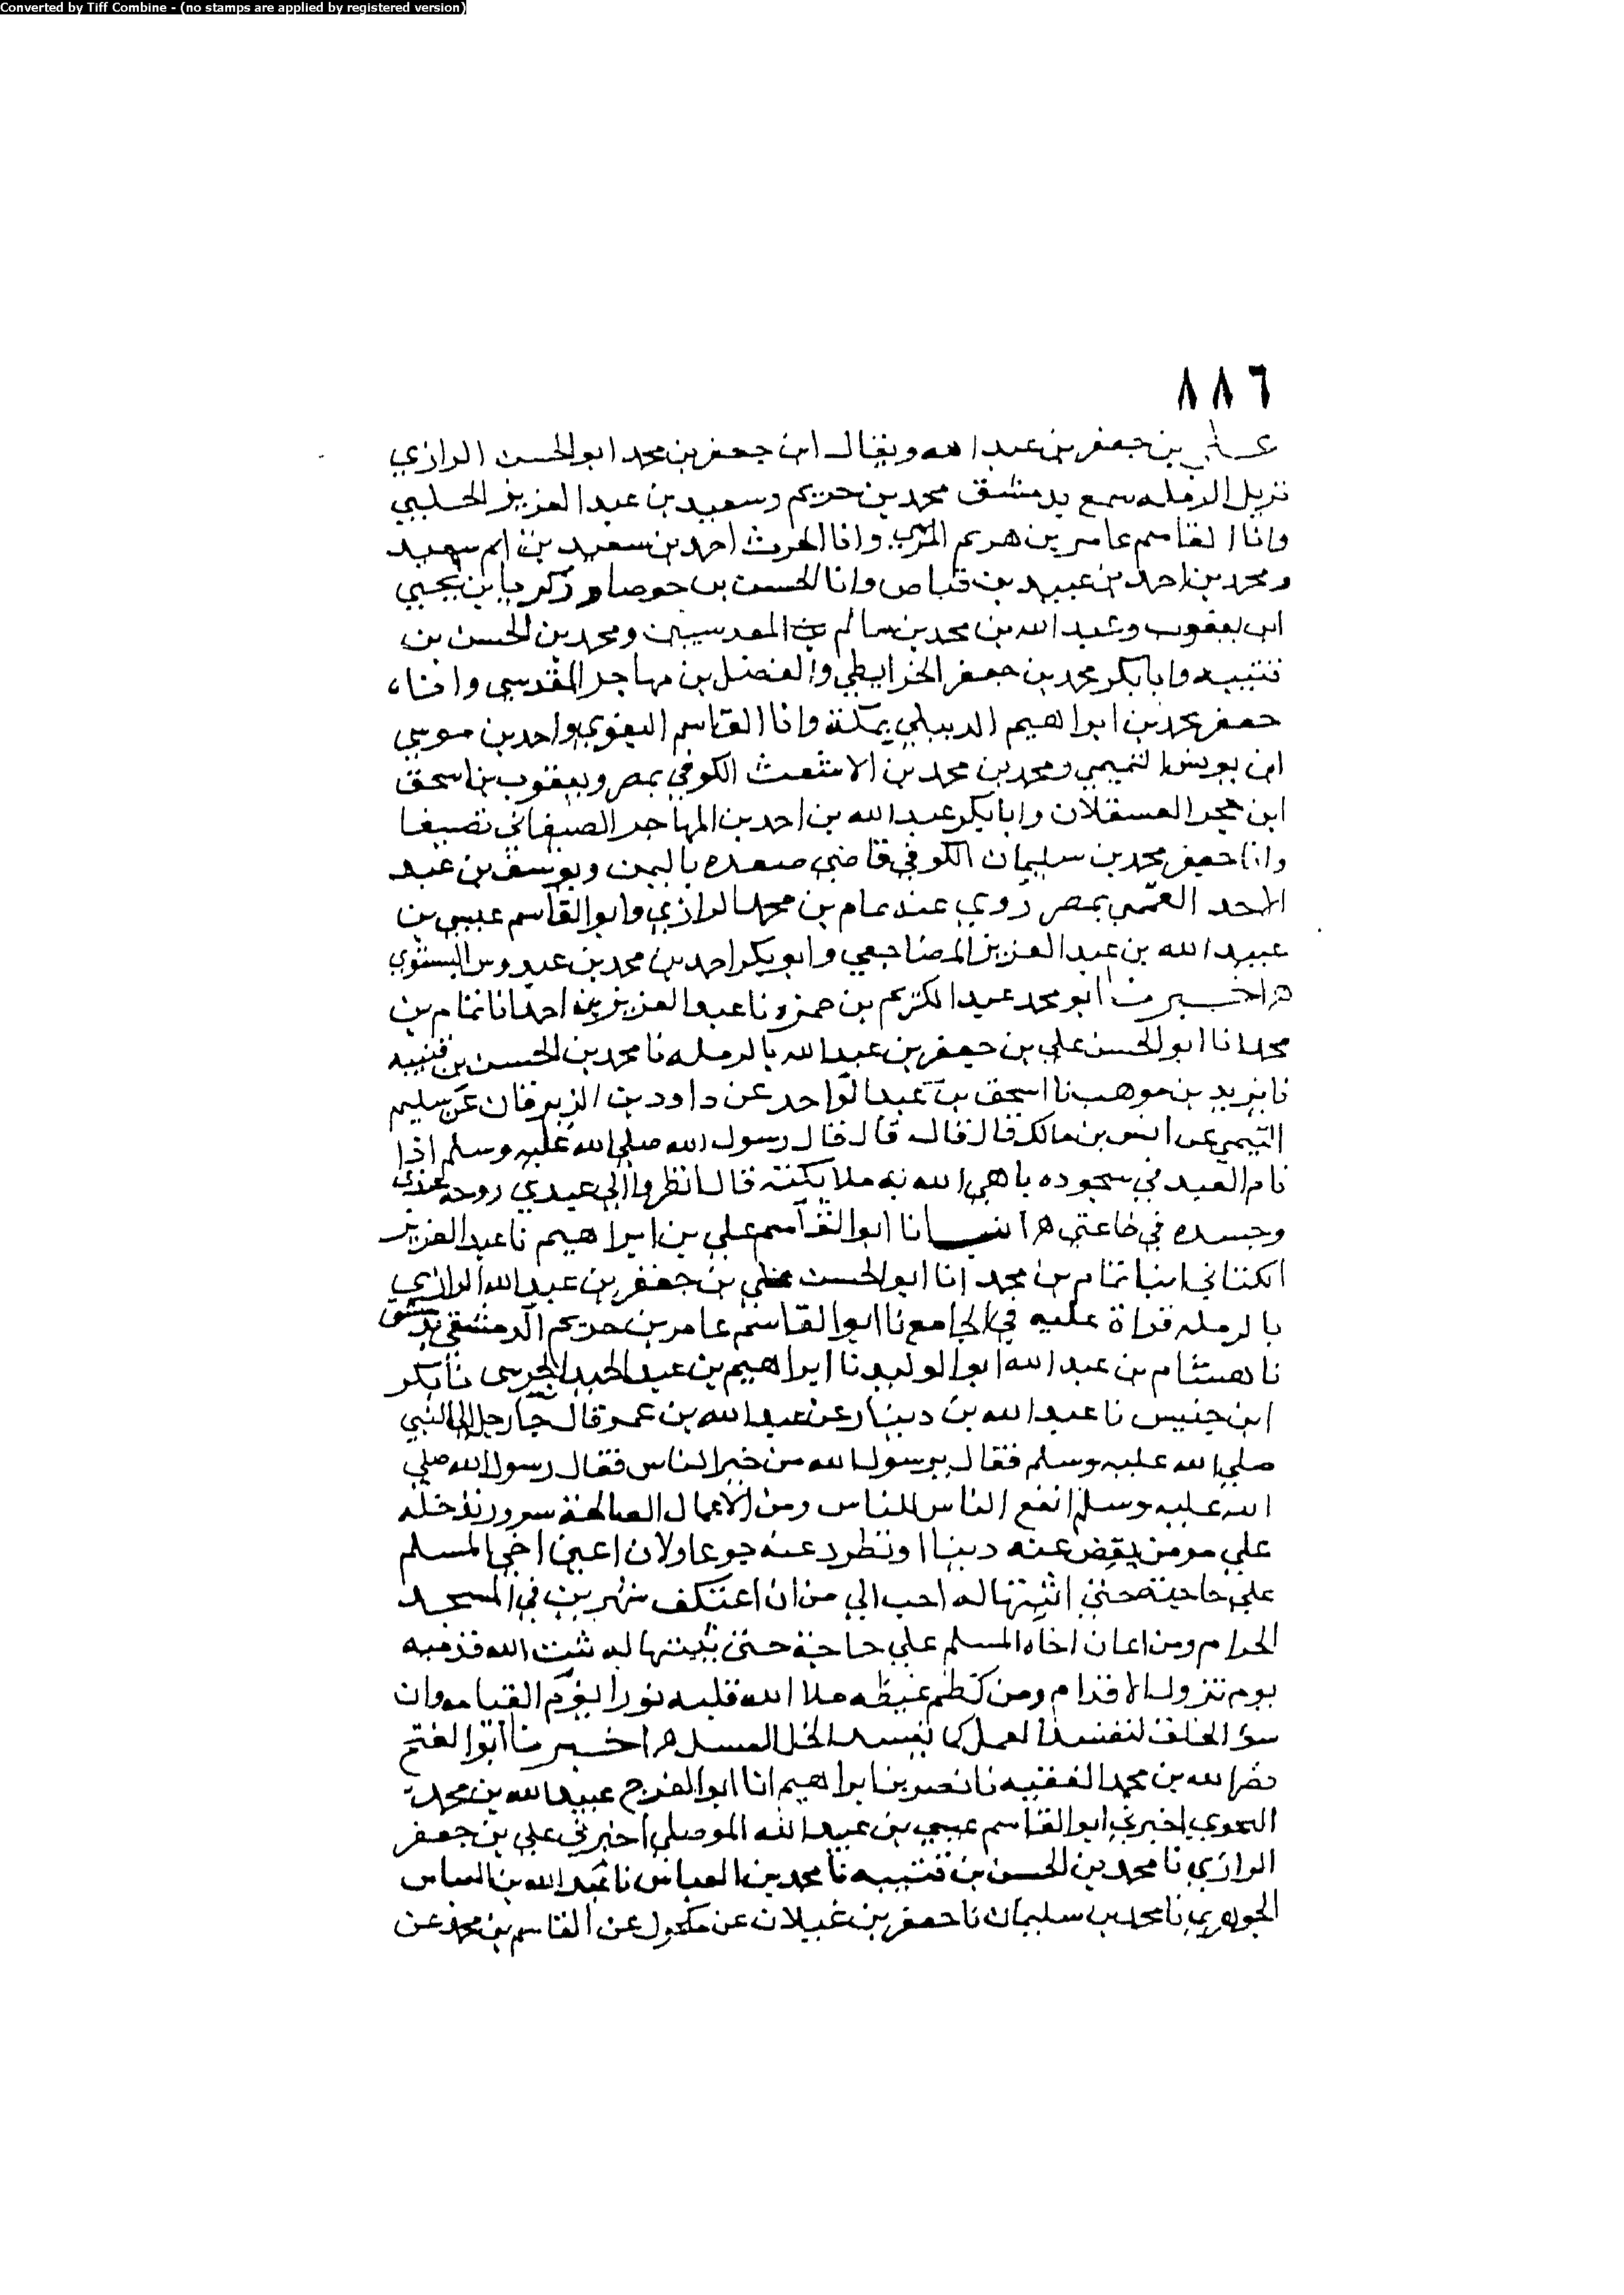 Converted by Tiff Combine - (no stamps are applied by registered version)
٨٨٦
علي بن جعفر بن عبد الله ويقال ابن جعفر بن محمد ابو الحسن الرازي
نزيل الرمله سمع بدمشق محمد بن خريم وسعيد بن عبد العزيز الحلبي
وانا القاسم عامر بن هريم المري وانا الحرث احمد بن سعيد بن ام سهيد
ومحمد بن احمد بن عبيد بن قباص وانا الحسن بن حوصا وزكريا بن يحيي
ابن يعقوب وعبد الله بن محمد بن سالم المقدسيين ومحمد بن الحسن بن
قتيبه وابا بكر محمد بن جعفر الخرايطي والفضل بن مهاجر المقدسي وانا
جعفر محمد بن ابراهيم الديبلي بمكة وانا القاسم البغوي واحمد بن موسي
ابن يونس التميمي ومحمد بن محمد بن الاشعث الكوفي بمصر ويعقوب بن اسحق
ابن حجر العسقلان وابا بكر عبد الله بن احمد بن المهاجر الصنعاني
وانا جعفر محمد بن سليمان الكوفي قاضي صعده باليمن ويوسف بن عبد
الاحد القمي بمصر روي عنه تمام بن محمد الرازي وابو القاسم عيسي بن
عبيد الله بن عبد العزيز المصاحفي وابو بكر احمد بن محمد بن عبدوس النسوي
اخبرنا ابو محمد عبد الكريم بن حمزه نا عبد العزيز بن احمد انا تمام بن
محمد انا ابو الحسن علي بن جعفر بن عبد الله بالرمله نا محمد بن الحسن بن قتيبه
نا يزيد بن موهب نا اسحق بن عبد الواحد عن داود بن الزبرقان عن سليم
التيمي عن انس بن مالك قال قال قال رسول الله صلي الله عليه وسلم اذا
نام العبد في سجوده باهي الله به ملايكته قال انظروا الي عبدي روحه عندي
وجسده في طاعتي انبانا ابو القاسم علي بن ابراهيم نا عبد العزيز
الكتاني انبا تمام بن محمد انا ابو الحسن علي بن جعفر بن عبد الله الرازي
بالرمله قراة عليه في الجامع نا ابو القاسم عامر بن خريم الدمشقي بدمشق
نا هشام بن عبد الله ابو الوليد نا ابراهيم بن عبد الحميد الجرشي نا بكر
ابن خنيس نا عبد الله بن دينار عن عبد الله بن عمر قال جا رجل الي النبي
صلي الله عليه وسلم فقال يرسول الله من خير الناس فقال رسول الله صلي
الله عليه وسلم انفع الناس للناس ومن الاعمال الصالحة سرور تدخله
علي مومن يقض عنه دينا او تطرد عنه جوعا ولان اعين اخي المسلم
علي حاجته حتي اثبتها له احب الي من ان اعتكف شهرين في المسجد
الحرام ومن اعان اخاه المسلم علي حاجة حتي يثبتها له ثبت الله قدميه
يوم تزول الاقدام ومن كظم غيظه ملا الله قلبه نورا يوم القيامه وان
سوء الخلق لتفسد العمل كما يفسد الخل العسل اخبرنا ابو الفتح
نصر الله بن محمد الفقيه نا نصر بن ابراهيم انا ابو الفرج عبيد الله بن محمد
النحوي اخبرني ابو القاسم عيسي بن عبيد الله الموصلي اخبرني علي بن جعفر
الرازي نا محمد بن الحسن بن قتيبه نا محمد بن العباس نا عبد الله بن العباس
الجوهري نا محمد بن سليمان نا جعفر بن غيلان عن مكحول عن القاسم بن محمد عن